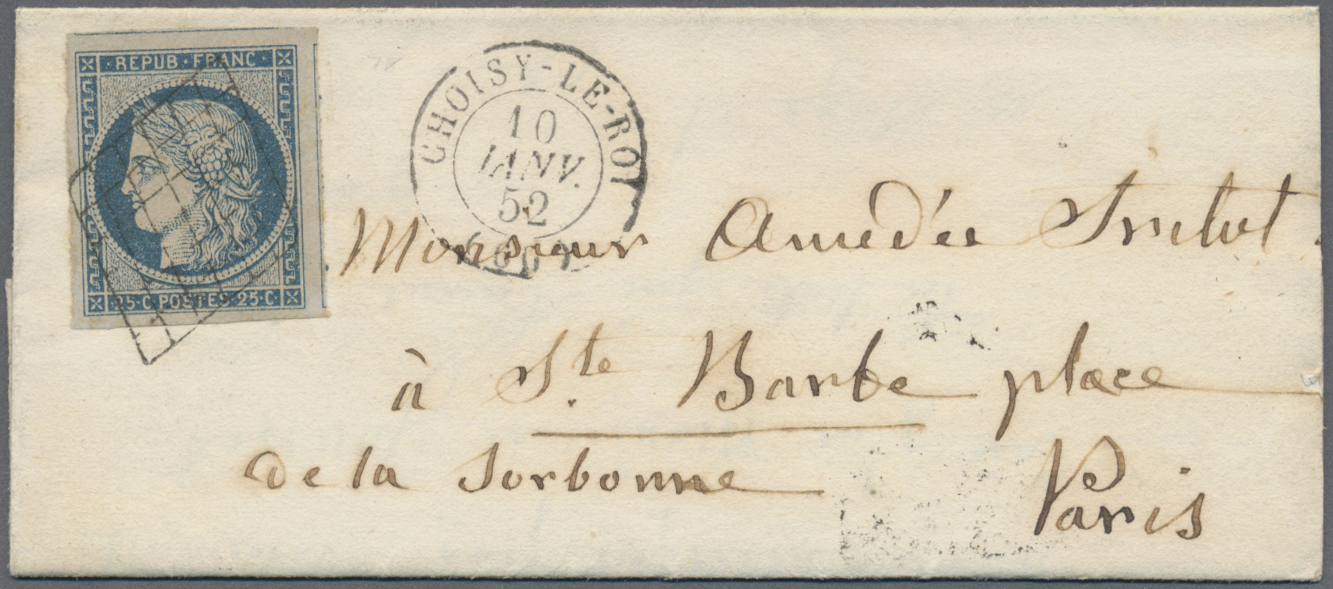 REPUB·FRANC
25·C·POSTES·25·C·
CHOISY-LE-ROI
10
JANV.
52
(60)
Monsieur Amédée
à Ste Barbe place
de la Sorbonne
Paris